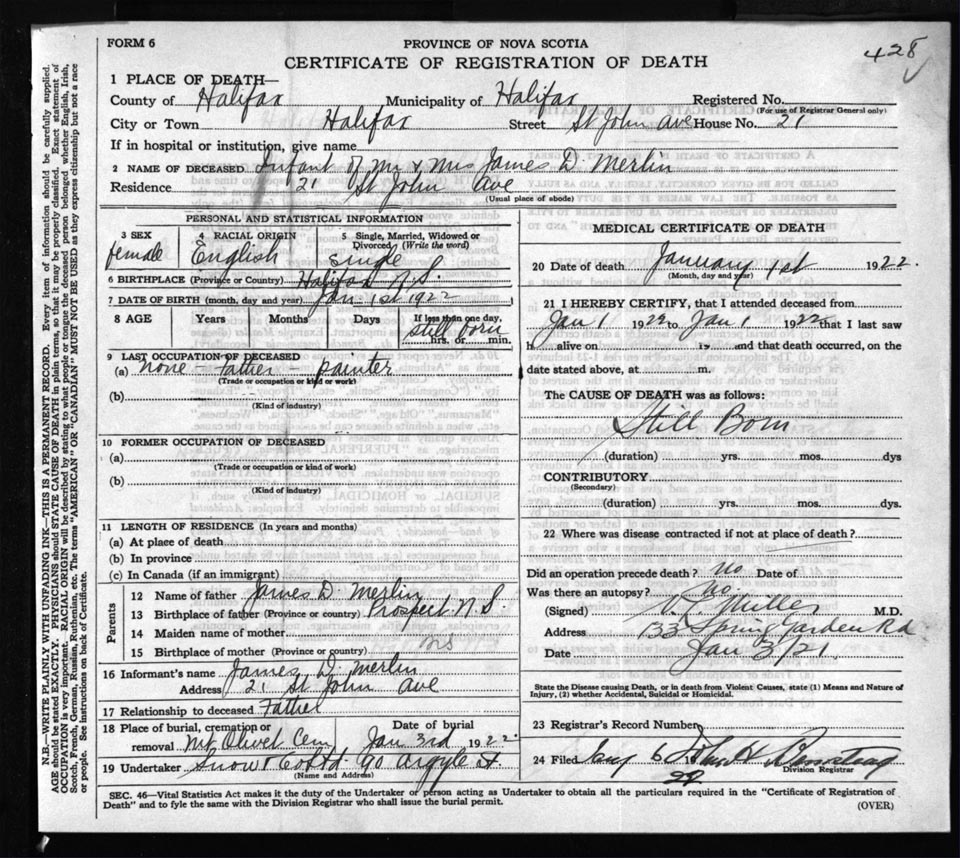 FORM 6
PROVINCE OF NOVA SCOTIA
428
CERTIFICATE OF REGISTRATION OF DEATH
1 PLACE OF DEATH—
County of Halifax Municipality of Halifax Registered No.
(For use of Registrar General only)
City or Town Halifax Street St John Ave House No. 21
If in hospital or institution, give name
2 NAME OF DECEASED Infant of Mr & Mrs James D. Merlin
Residence 21 St John Ave
(Usual place of abode)
PERSONAL AND STATISTICAL INFORMATION
3 SEX female
4 RACIAL ORIGIN English
5 Single, Married, Widowed or Divorced (Write the word) Single
6 BIRTHPLACE (Province or Country) Halifax N.S.
7 DATE OF BIRTH (month, day and year) Jan 1st 1922
8 AGE Years Months Days If less than one day, still born hrs. or min.
9 LAST OCCUPATION OF DECEASED
(a) None - Father - painter
(Trade or occupation or kind or work)
(b)
(Kind of industry)
10 FORMER OCCUPATION OF DECEASED
(a)
(Trade or occupation or kind of work)
(b)
(Kind of industry)
11 LENGTH OF RESIDENCE (In years and months)
(a) At place of death
(b) In province
(c) In Canada (if an immigrant)
Parents
12 Name of father James D. Merlin
13 Birthplace of father (Province or country) Prospect N.S.
14 Maiden name of mother
15 Birthplace of mother (Province or country) NS
16 Informant's name James D. Merlin
Address 21 St John Ave
17 Relationship to deceased Father
18 Place of burial, cremation or removal Mt Olivet Cem Date of burial Jan 3rd 1922
19 Undertaker Snow & Co Ltd 90 Argyle St.
(Name and Address)
MEDICAL CERTIFICATE OF DEATH
20 Date of death January 1st 1922.
(Month, day and year)
21 I HEREBY CERTIFY, that I attended deceased from
Jan 1 1922 to Jan 1 1922 that I last saw
h alive on 19 and that death occurred, on the
date stated above, at m.
The CAUSE OF DEATH was as follows:
Still Born
(duration) yrs. mos. dys
CONTRIBUTORY
(Secondary)
(duration) yrs. mos. dys.
22 Where was disease contracted if not at place of death?
Did an operation precede death? no Date of
Was there an autopsy? No.
(Signed) Miller M.D.
Address 133 Spring Garden Rd
Date Jan 3/21.
State the Disease causing Death, or in death from Violent Causes, state (1) Means and Nature of
Injury, (2) whether Accidental, Suicidal or Homicidal.
23 Registrar's Record Number
24 Filed 6 19 22 John H
Division Registrar
SEC. 46—Vital Statistics Act makes it the duty of the Undertaker or person acting as Undertaker to obtain all the particulars required in the "Certificate of Registration of
Death" and to fyle the same with the Division Registrar who shall issue the burial permit.
(OVER)
N.B.—WRITE PLAINLY WITH UNFADING INK—THIS IS A PERMANENT RECORD. Every item of information should be carefully supplied.
AGE should be stated EXACTLY. PHYSICIANS should STATE CAUSE OF DEATH in plain terms, so that it may be properly classified. Exact statement of
OCCUPATION is very important. RACIAL ORIGIN will be described by stating to what people or tongue the deceased person belonged whether English, Irish,
Scotch, French, German, Russian, Ruthenian, etc. The terms "AMERICAN" OR "CANADIAN" MUST NOT BE USED as they express citizenship but not a race
or people. See instructions on back of Certificate.